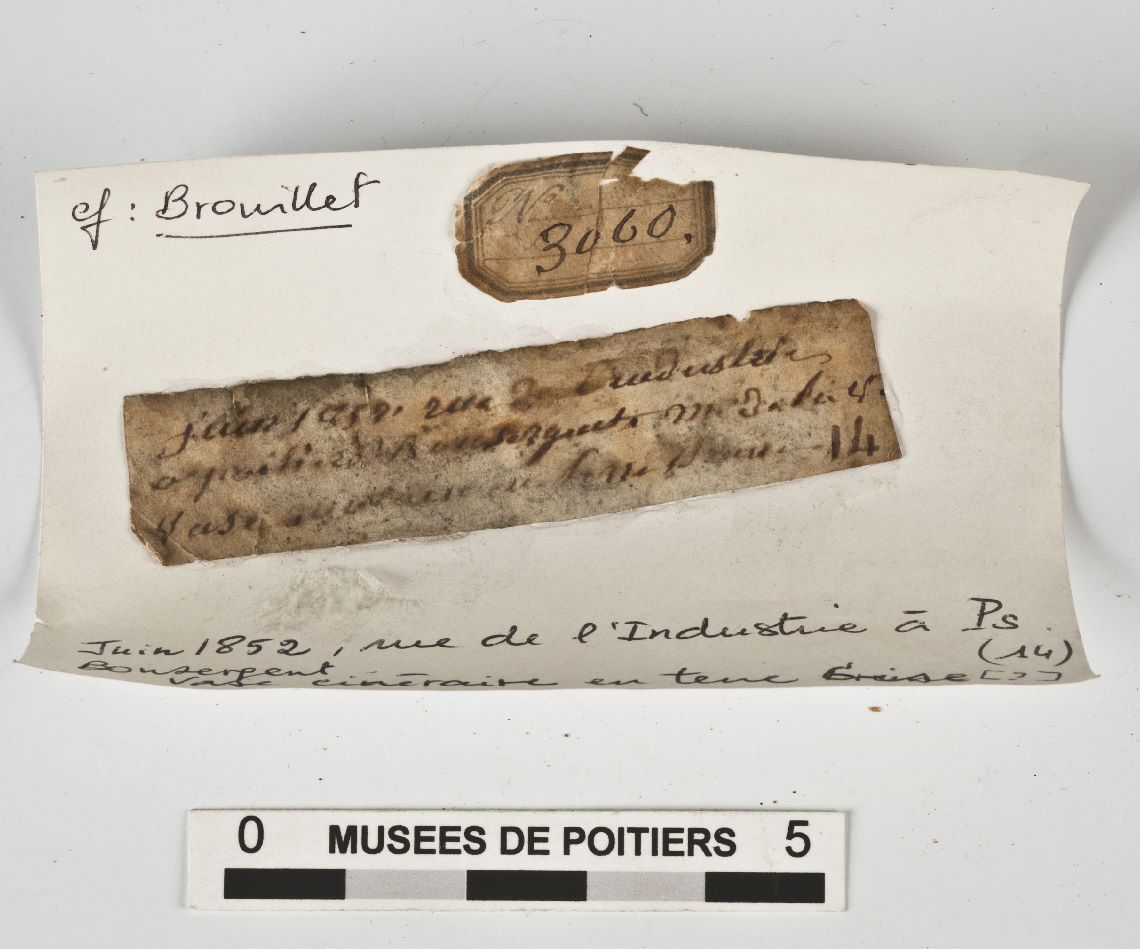 cf : Brouillet
No
3060.
juin 1852 rue de l'industrie
Bonsergent
Vase cinéraire en terre 14
Juin 1852, rue de l'Industrie à Ps
(14)
Bonsergent
Vase cinéraire en terre Grise [?]
0 MUSEES DE POITIERS 5